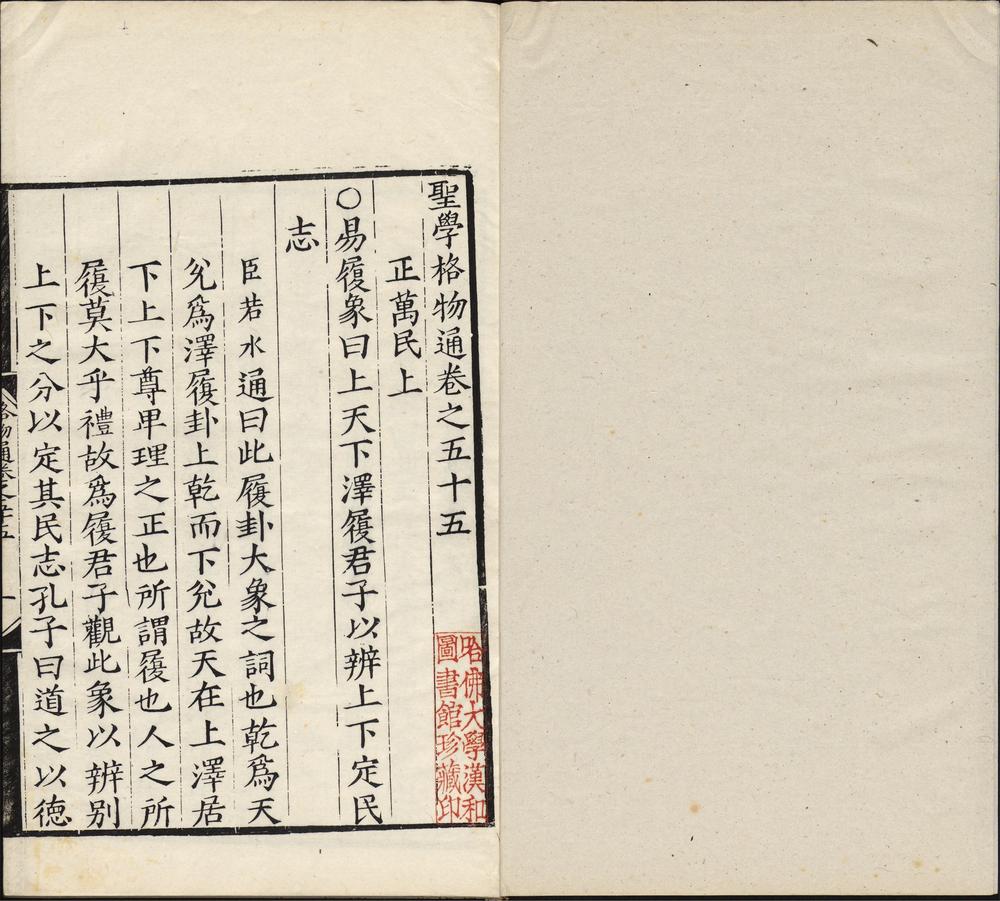 聖學格物通卷之五十五
正萬民上
○易履象曰上天下澤履君子以辨上下定民
志
臣若水通曰此履卦大象之詞也乾爲天
兊爲澤履卦上乾而下兊故天在上澤居
下上下尊卑理之正也所謂履也人之所
履莫大乎禮故爲履君子觀此象以辨別
上下之分以定其民志孔子曰道之以徳
格物通卷之五十五
一
哈佛大學漢和
圖書館珍藏印